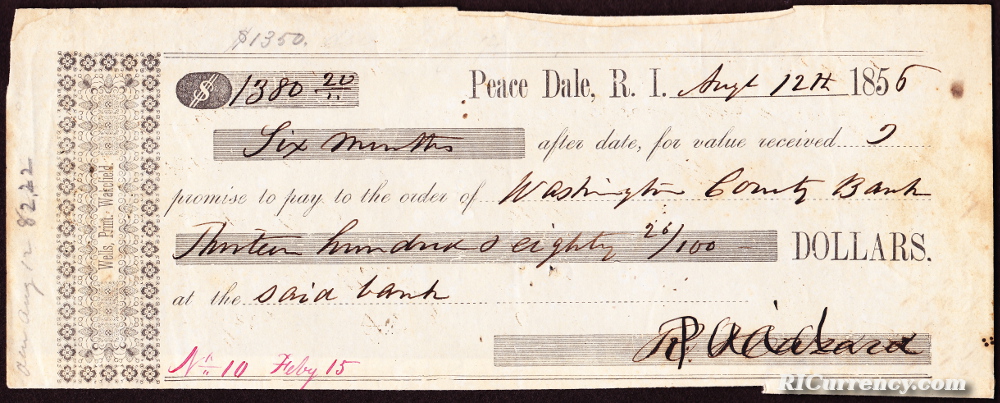 $1350.
$ 1380 20/"
Peace Dale, R. I. Augt 12th 1856
Six Months after date, for value received I
promise to pay to the order of Washington County Bank
Thirteen hundred & eighty 20/100 DOLLARS.
at the said bank
R. Hazard
Paid
No 10 Feby 15
Wells, Print. Wakefield.
Aug 12 8222
RICurrency.com